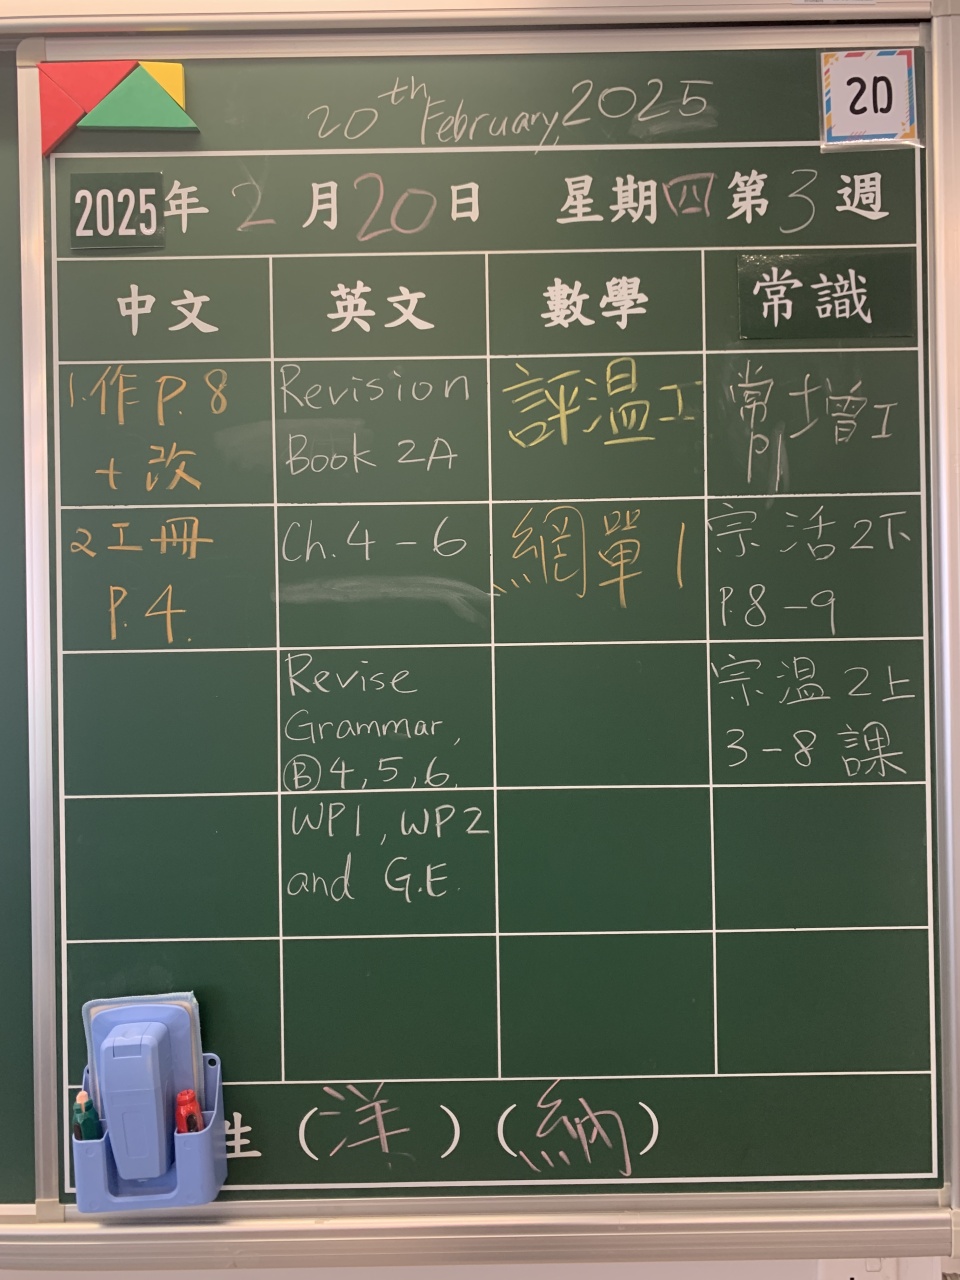 20th February, 2025
2D
2025年 2 月 20 日 星期四 第 3 週
中文 英文 數學 常識
1.作 P.8
+ 改
Revision
Book 2A
評溫工
常增工
2工冊
P.4.
Ch.4-6
網單1
宗活2下
P.8-9
Revise
Grammar,
Ⓑ4,5,6.
宗溫2上
3-8課
WP1, WP2
and G.E.
生 (洋) (納)